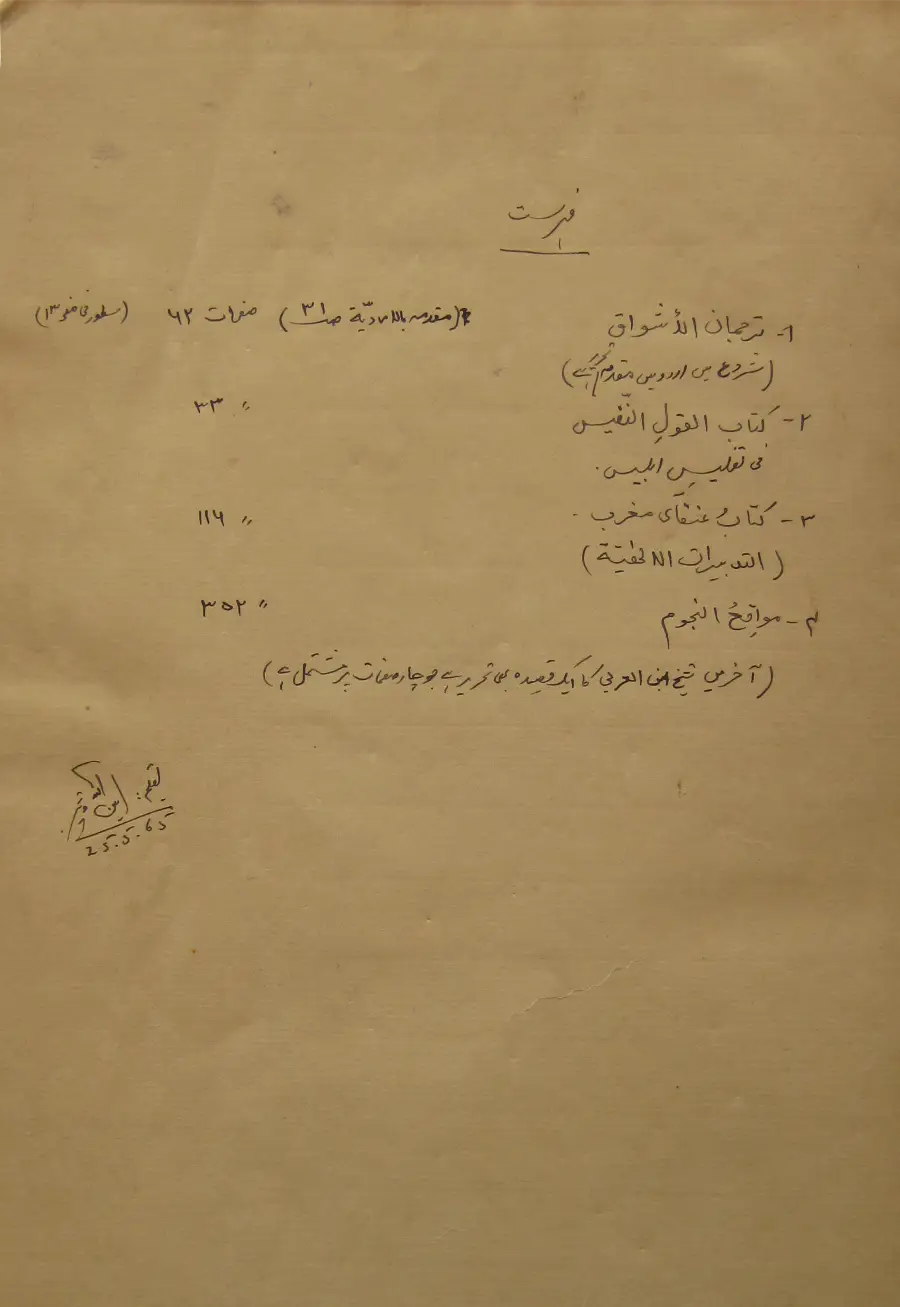 فہرست
۱- ترجمان الأشواق (مقدمہ بالاردیّة صـ ۳۱) صفحات ۶۲ (سطور فی صفحہ ۱۳)
(شروع میں اردو میں مقدمہ تحریر ہے)
۲- کتاب القولِ النّفیس 〃 ۳۳
فی تفلیسِ ابلیس.
۳- کتابُ عنقآی مغرب. 〃 ۱۱۶
(التدبیرات الالٰھیّة)
۴- مواقعُ النجوم 〃 ۳۵۲
(آخر میں شیخ ابن العربی کا ایک قصیدہ بھی تحریر ہے جو چار صفحات پر مشتمل ہے)
بقلم:
25.5.65